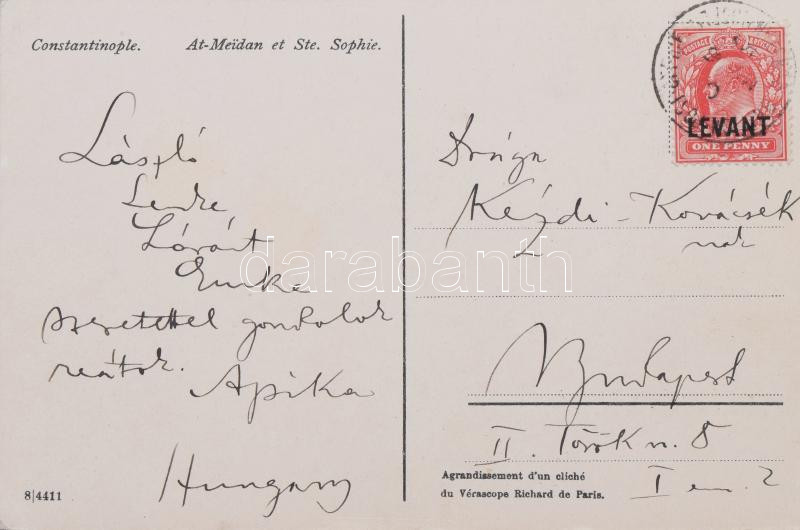 Constantinople. At-Meïdan et Ste. Sophie.
László
Lenke
Lóránt
Emke
szeretettel gondolok
reátok.
Apika
Hungary
8|4411
POSTAGE & REVENUE
LEVANT
ONE PENNY
Drága
Kézdi-Kovácsék
nak
Budapest
II. Török u. 8
I em. 2
Agrandissement d'un cliché
du Vérascope Richard de Paris.
darabanth